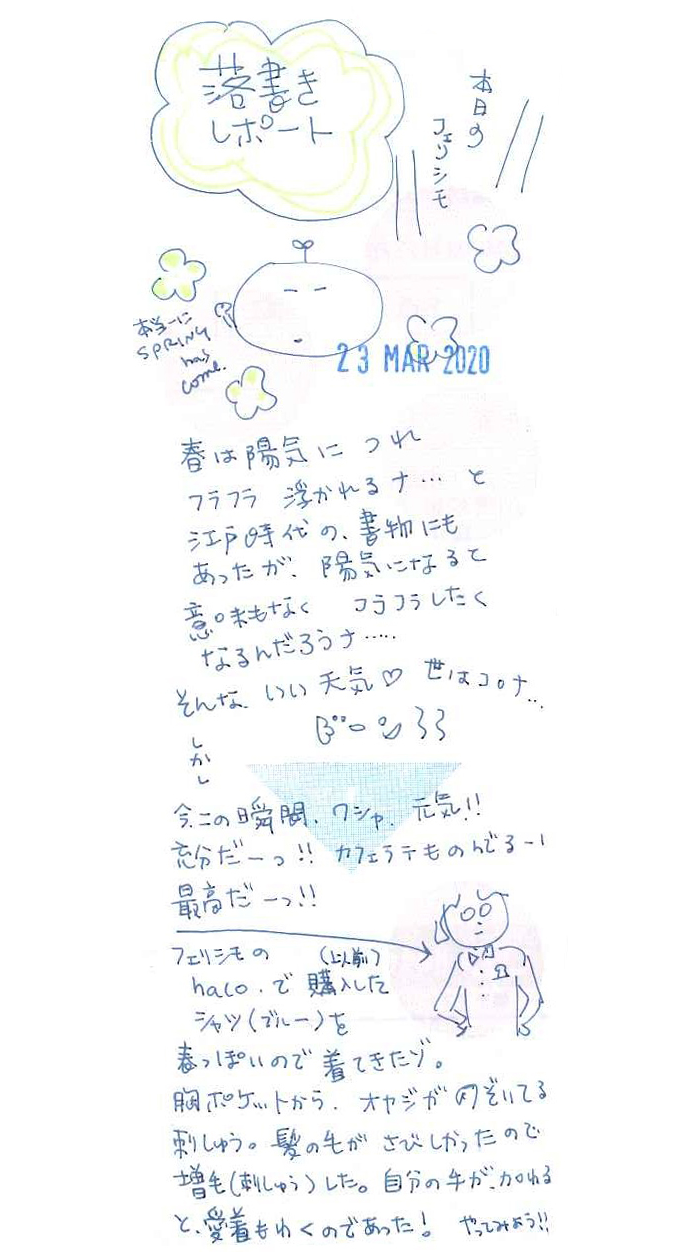 落書き
レポート
本日の
フェリシモ
本当に
SPRING
has
come.
23 MAR 2020
春は陽気に つれ
フラフラ 浮かれるナ… と
江戸時代の、書物にも
あったが、陽気になると
意味もなく フラフラしたく
なるんだろうナ……
そんな、いい 天気♡ 世はコロナ..
ドーン
しかし
今この瞬間、ワシャ、元気!!
充分だーっ!! カフェラテものんでるー!
最高だーっ!!
フェリシモの (以前)
haco.で 購入した
シャツ(ブルー)を
春っぽいので 着てきたゾ。
胸ポケットから、オヤジがのぞいてる
刺しゅう。髪の毛が さびしかったので
増毛(刺しゅう)した。自分の手が、加わる
と、愛着もわくのであった! やってみよう!!